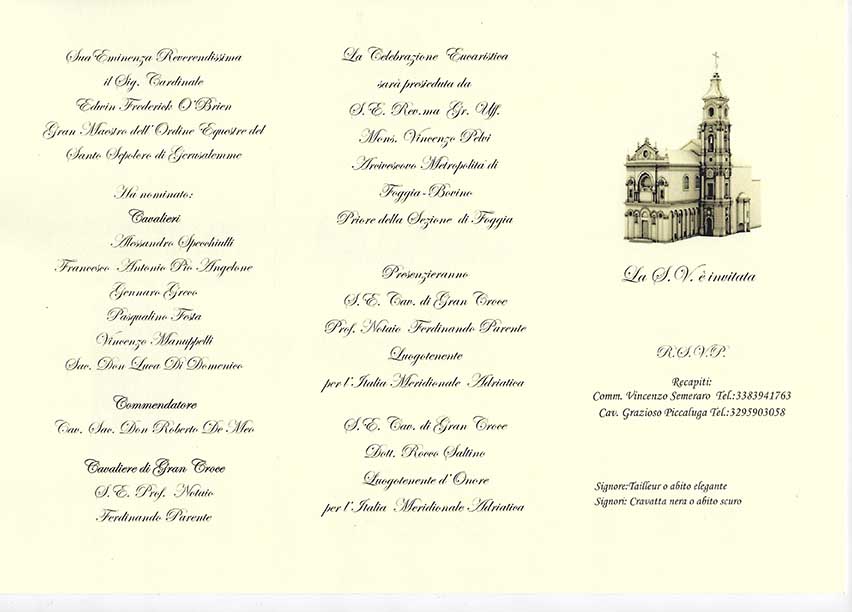 Sua Eminenza Reverendissima
il Sig. Cardinale
Edwin Frederick O'Brien
Gran Maestro dell'Ordine Equestre del
Santo Sepolcro di Gerusalemme
Ha nominato:
Cavalieri
Alessandro Specchiulli
Francesco Antonio Pio Angelone
Gennaro Greco
Pasqualino Festa
Vincenzo Manuppelli
Sac. Don Luca Di Domenico
Commendatore
Cav. Sac. Don Roberto De Meo
Cavaliere di Gran Croce
S. E. Prof. Notaio
Ferdinando Parente
La Celebrazione Eucaristica
sarà presieduta da
S. E. Rev.ma Gr. Uff.
Mons. Vincenzo Pelvi
Arcivescovo Metropolita di
Foggia-Bovino
Priore della Sezione di Foggia
Presenzieranno
S. E. Cav. di Gran Croce
Prof. Notaio Ferdinando Parente
Luogotenente
per l'Italia Meridionale Adriatica
S. E. Cav. di Gran Croce
Dott. Rocco Saltino
Luogotenente d'Onore
per l'Italia Meridionale Adriatica
La S. V. è invitata
R.S.V.P.
Recapiti:
Comm. Vincenzo Semeraro Tel.:3383941763
Cav. Grazioso Piccaluga Tel.:3295903058
Signore:Tailleur o abito elegante
Signori: Cravatta nera o abito scuro